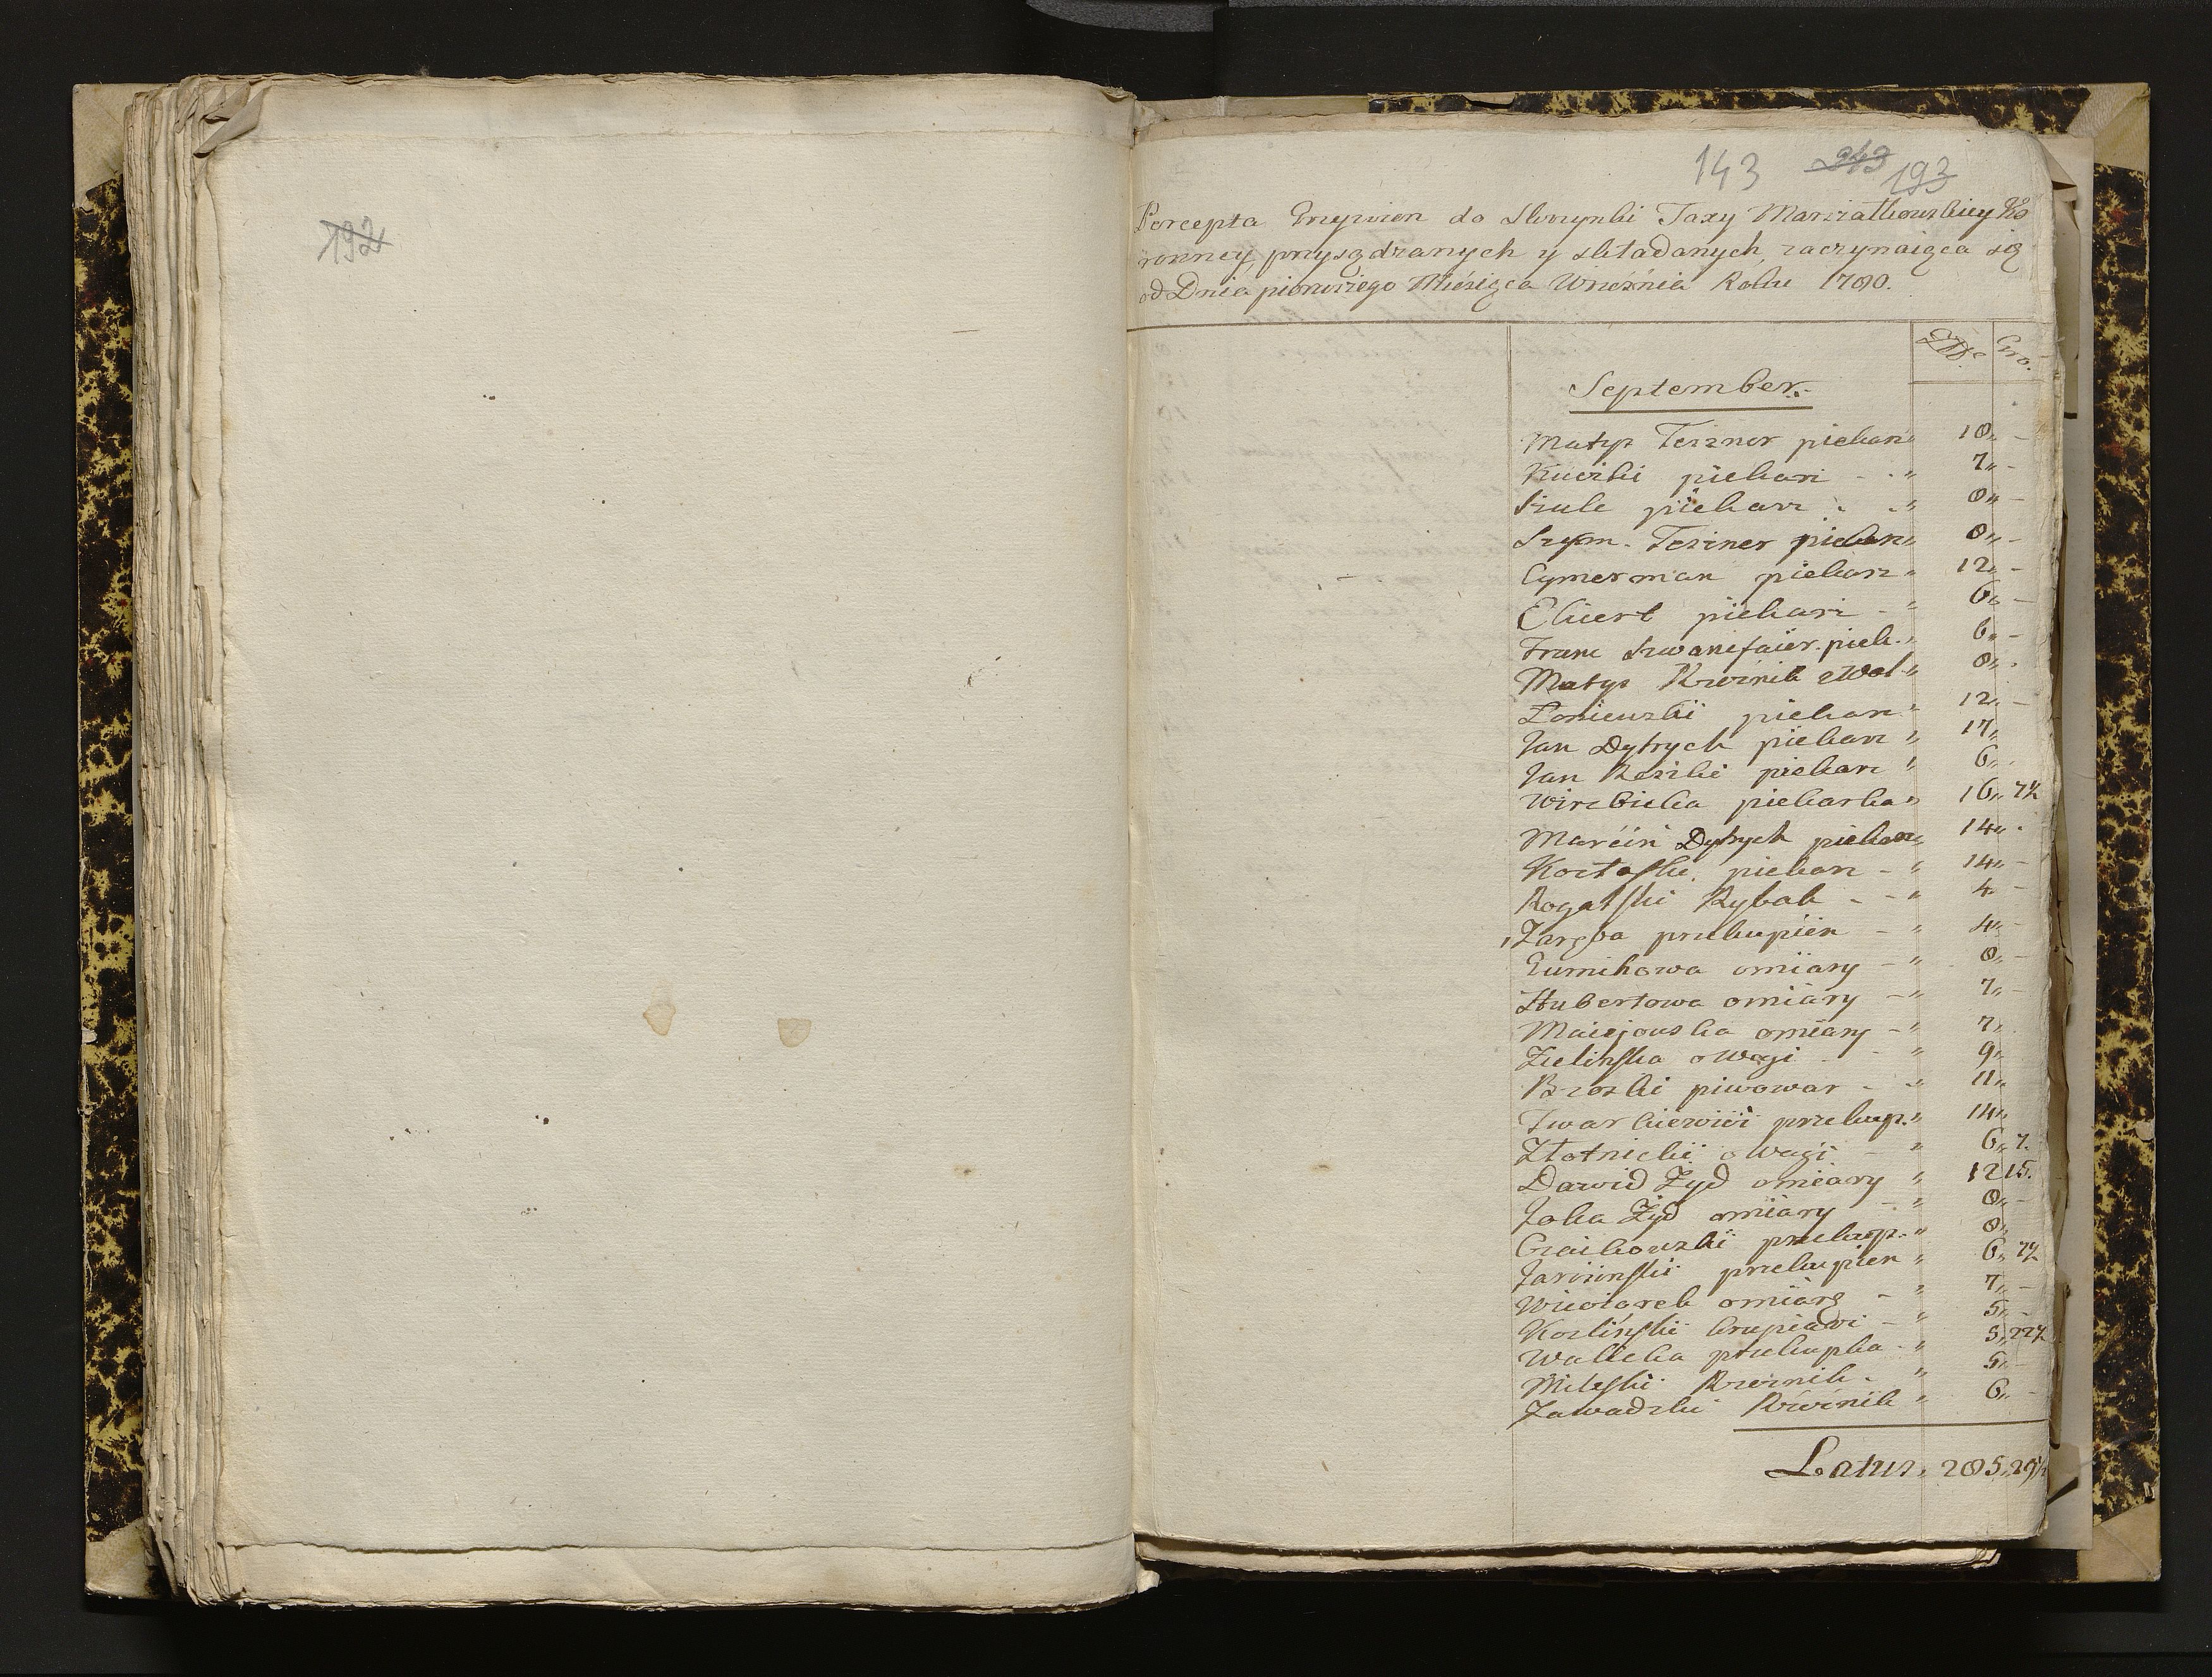 192
143 243 193
Percepta Grzywien do Skrzynki Taxy Marszałkowskiey Ko
ronney, przysądzanych y składanych, zaczynaiąca się
od Dnia pierwszego Miesiąca Września Roku 1780.
Złp. Gro.
September.
Matys Teszner piekarz 18 „ -
Kucski piekarz - „ 7 „ -
Szulc piekarz „ 8 „ -
Szym. Teszner piekarz „ 8 „ -
Cymerman piekarz „ 12 „ -
Ekiert piekarz - „ 6 „ -
Franc Szwancfaier. piek. „ 6 „ -
Matys Rzeźnik z Wol „ 8 „
Łoniewski piekarz 12 „ -
Jan Dytrych piekarz „ 17 „
Jan Reszke piekarz „ 6 „
Wirzbicka piekarka „ 16 „ 7½
Marcin Dytrych piekarz „ 14 „
piekarz - „ 14 „ -
Rogalski Rybak - - „ 4 -
Zaręba przekupień - „ 4 „ -
omiary - „ 8 „ -
Hubertowa omiary - „ 7 „ -
Maiejowska omiary - „ 7 „
Zielińska o Wagi - „ 9 „
Brzoski piwowar - „ 11 „
Twarkiewicz przekup. „ 14 „
Złotnicki o Wagi - „ 6 „ 7.
Dawid Żyd omiary „ 12 15.
Joka Żyd omiary - „ 8 „ -
Czaikowski przekup. „ 8 „
Jarzinski przekupień „ 6 „ 7½
omiarę - „ 7 „ -
Kozliński - „ 5 „ -
Walicka przekupka - „ 5 „ 22½
Mileski Rzeźnik - „ 5 „ -
Zawadzki Rzeźnik „ 6 „ -
Latus. 285 „ 29½